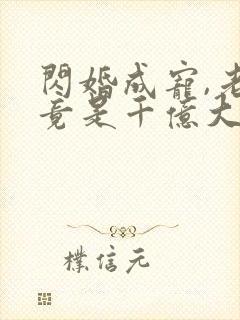 閃婚成寵,老
竟是千億大
樸信元